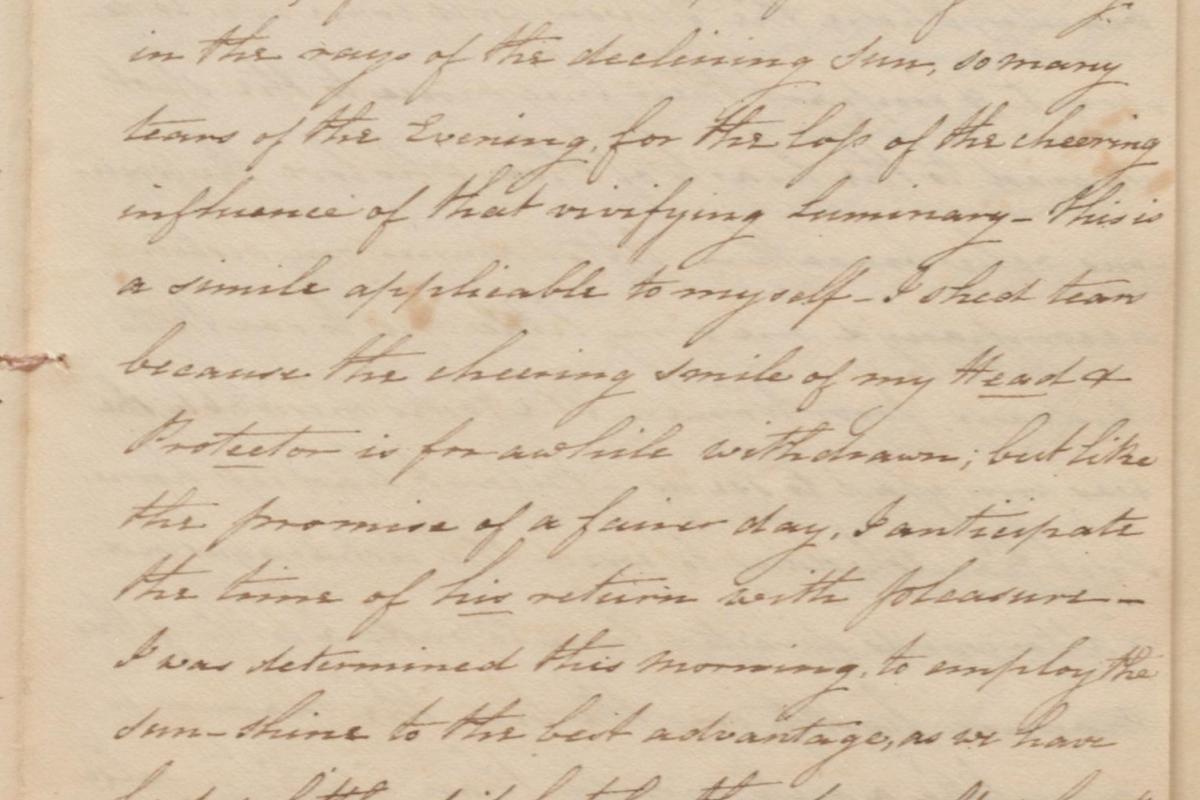 in the rays of the declining sun, so many
tears of the Evening, for the loss of the cheering
influence of that vivifying luminary – This is
a simile applicable to myself – I shed tears
because the cheering smile of my Head &
Protector is for awhile withdrawn; but like
the promise of a fairer day, I anticipate
the time of his return with pleasure –
I was determined this morning, to employ the
sun-shine to the best advantage, as we have